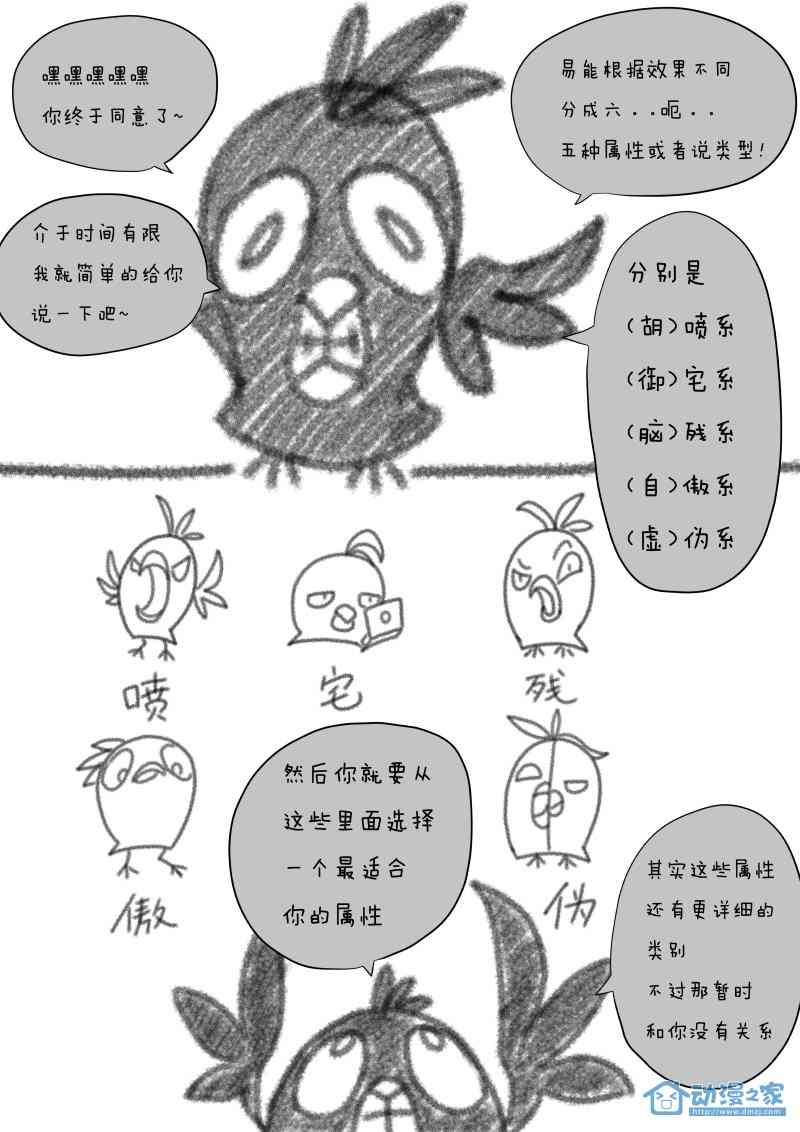 嘿嘿嘿嘿嘿
你终于同意了~
易能根据效果不同
分成六..呃..
五种属性或者说类型!
介于时间有限
我就简单的给你
说一下吧~
分别是
(胡)喷系
(御)宅系
(脑)残系
(自)傲系
(虚)伪系
喷
宅
残
傲
伪
然后你就要从
这些里面选择
一个最适合
你的属性
其实这些属性
还有更详细的
类别
不过那暂时
和你没有关系
动漫之家
http://www.dmzj.com